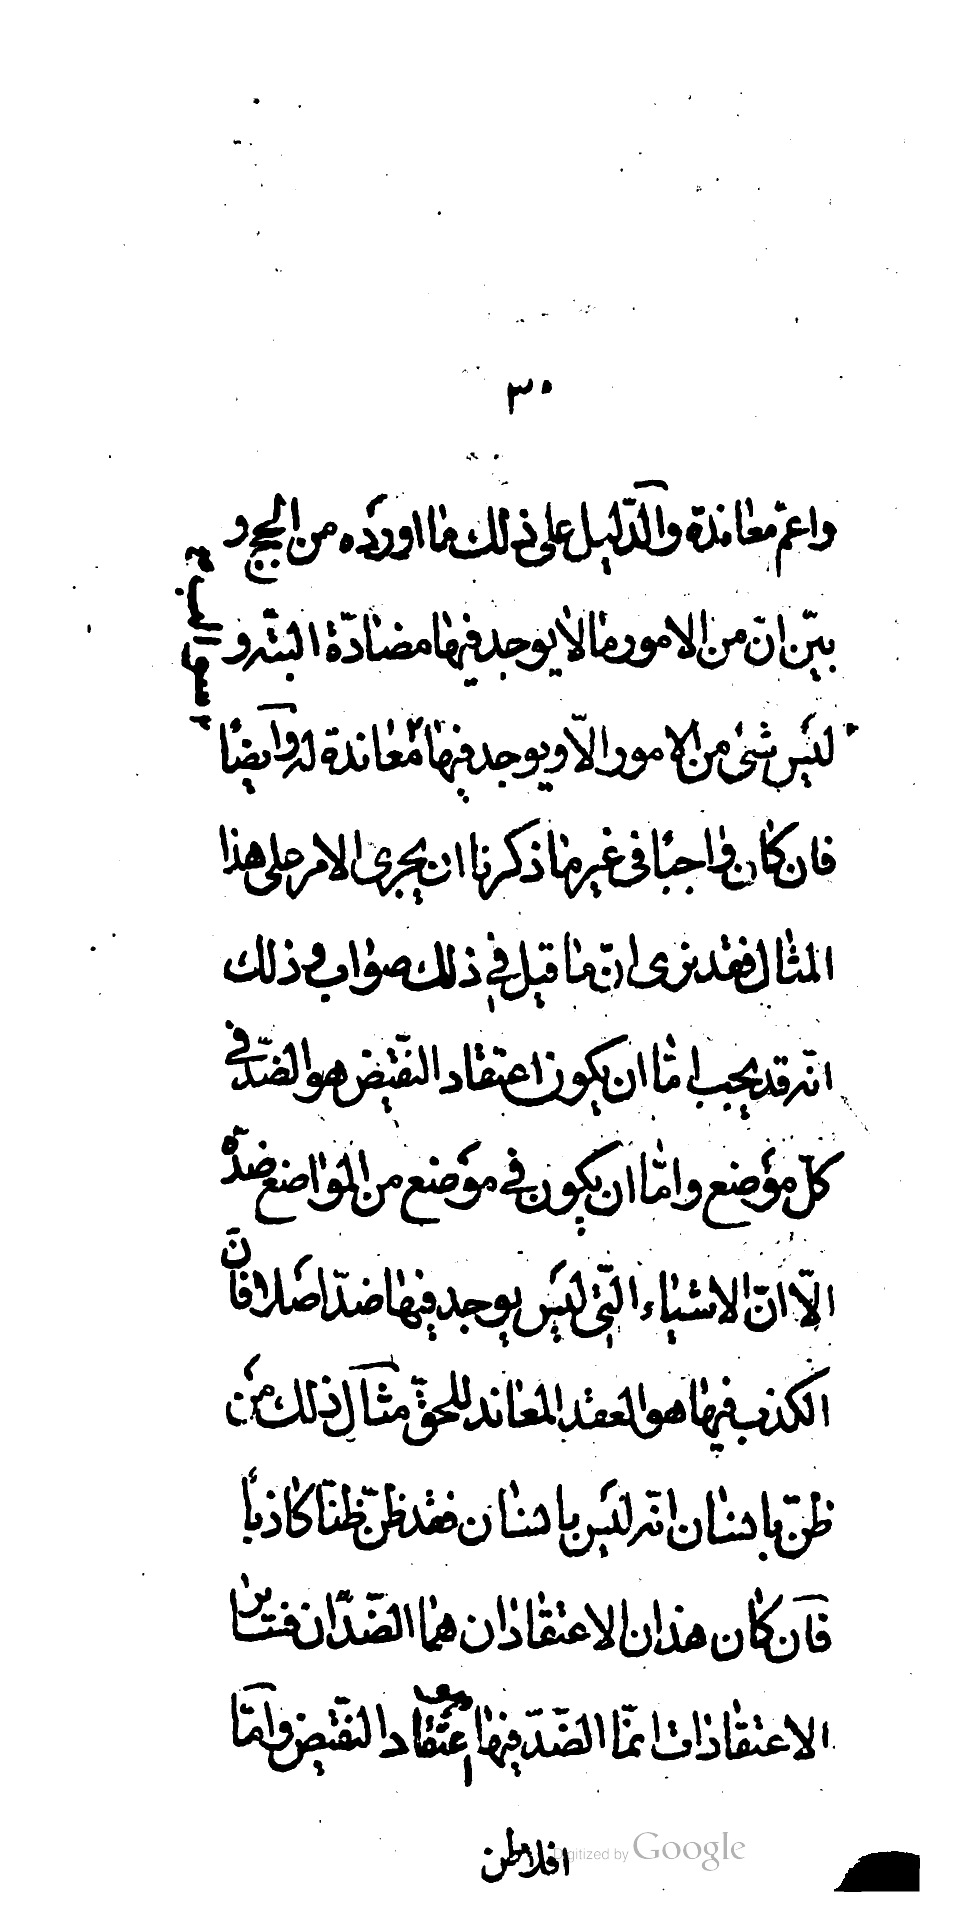 ٣٠
واعمّ معاندة والدّليل على ذلك ما اورده من الحجج و
بيّن انّ من الامور ما لا يوجد فيها مضادّة البتّه و
ليس شئ من الامور الّا ويوجد فيها معاندة له وايضًا
فان كان واجبًا فى غير ما ذكرنا ان يجرى الامر على هذا
المثال فقد نرى انّ ما قيل فى ذلك صواب وذلك
انّه قد يجب امّا ان يكون اعتقاد النقيض هو الضدّ فى
كلّ موضع وامّا ان يكون فى موضع من المواضع ضدّه
الّا انّ الاشياء الّتى ليس يوجد فيها ضدّ اصلا فانّ
الكذب فيها هو العقد المعاند للحقّ مثال ذلك من
ظنّ بانسان انّه ليس بانسان فقد ظنّ ظنّا كاذبا
فان كان هذان الاعتقادان هما الضدّان فسائر
الاعتقادات انّما الضدّ فيها اعتقاد النقيض وامّا
افلاطن
Digitized by Google